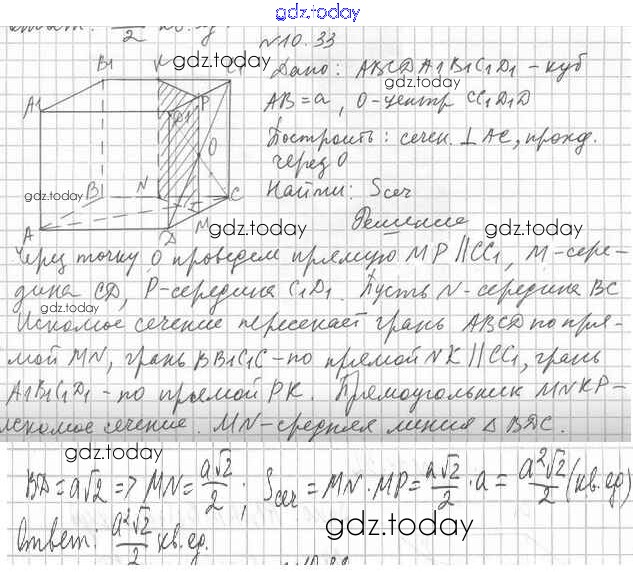 gdz.today
Ответ: /2 кв.ед.
N10.33
B1 K gdz.today C1
Дано: ABCDA1B1C1D1 - куб
gdz.today
A1 D1 P
AB = a, O-центр CC1D1D
O
Построить: сечен. ⊥ AC, проход.
через O
gdz.today B N C
Найти: Sсеч
A D M gdz.today
Решение gdz.today
Через точку O проведем прямую MP || CC1, M - сере-
дина CD, P-середина C1D1. Пусть N - середина BC
gdz.today
Искомое сечение пересекает грань ABCD по пря-
мой MN, грань BB1C1C - по прямой NK || CC1, грань
A1B1C1D1 - по прямой PK. Прямоугольник MNKP -
искомое сечение. MN - средняя линия Δ BDC.
gdz.today
BD = a√2 => MN = a√2/2; Sсеч = MN · MP = a√2/2 · a = a²√2/2 (кв. ед)
Ответ: a²√2/2 кв.ед.
gdz.today